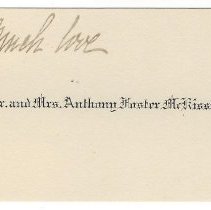 Much love
r. and Mrs. Anthony Foster McKiss